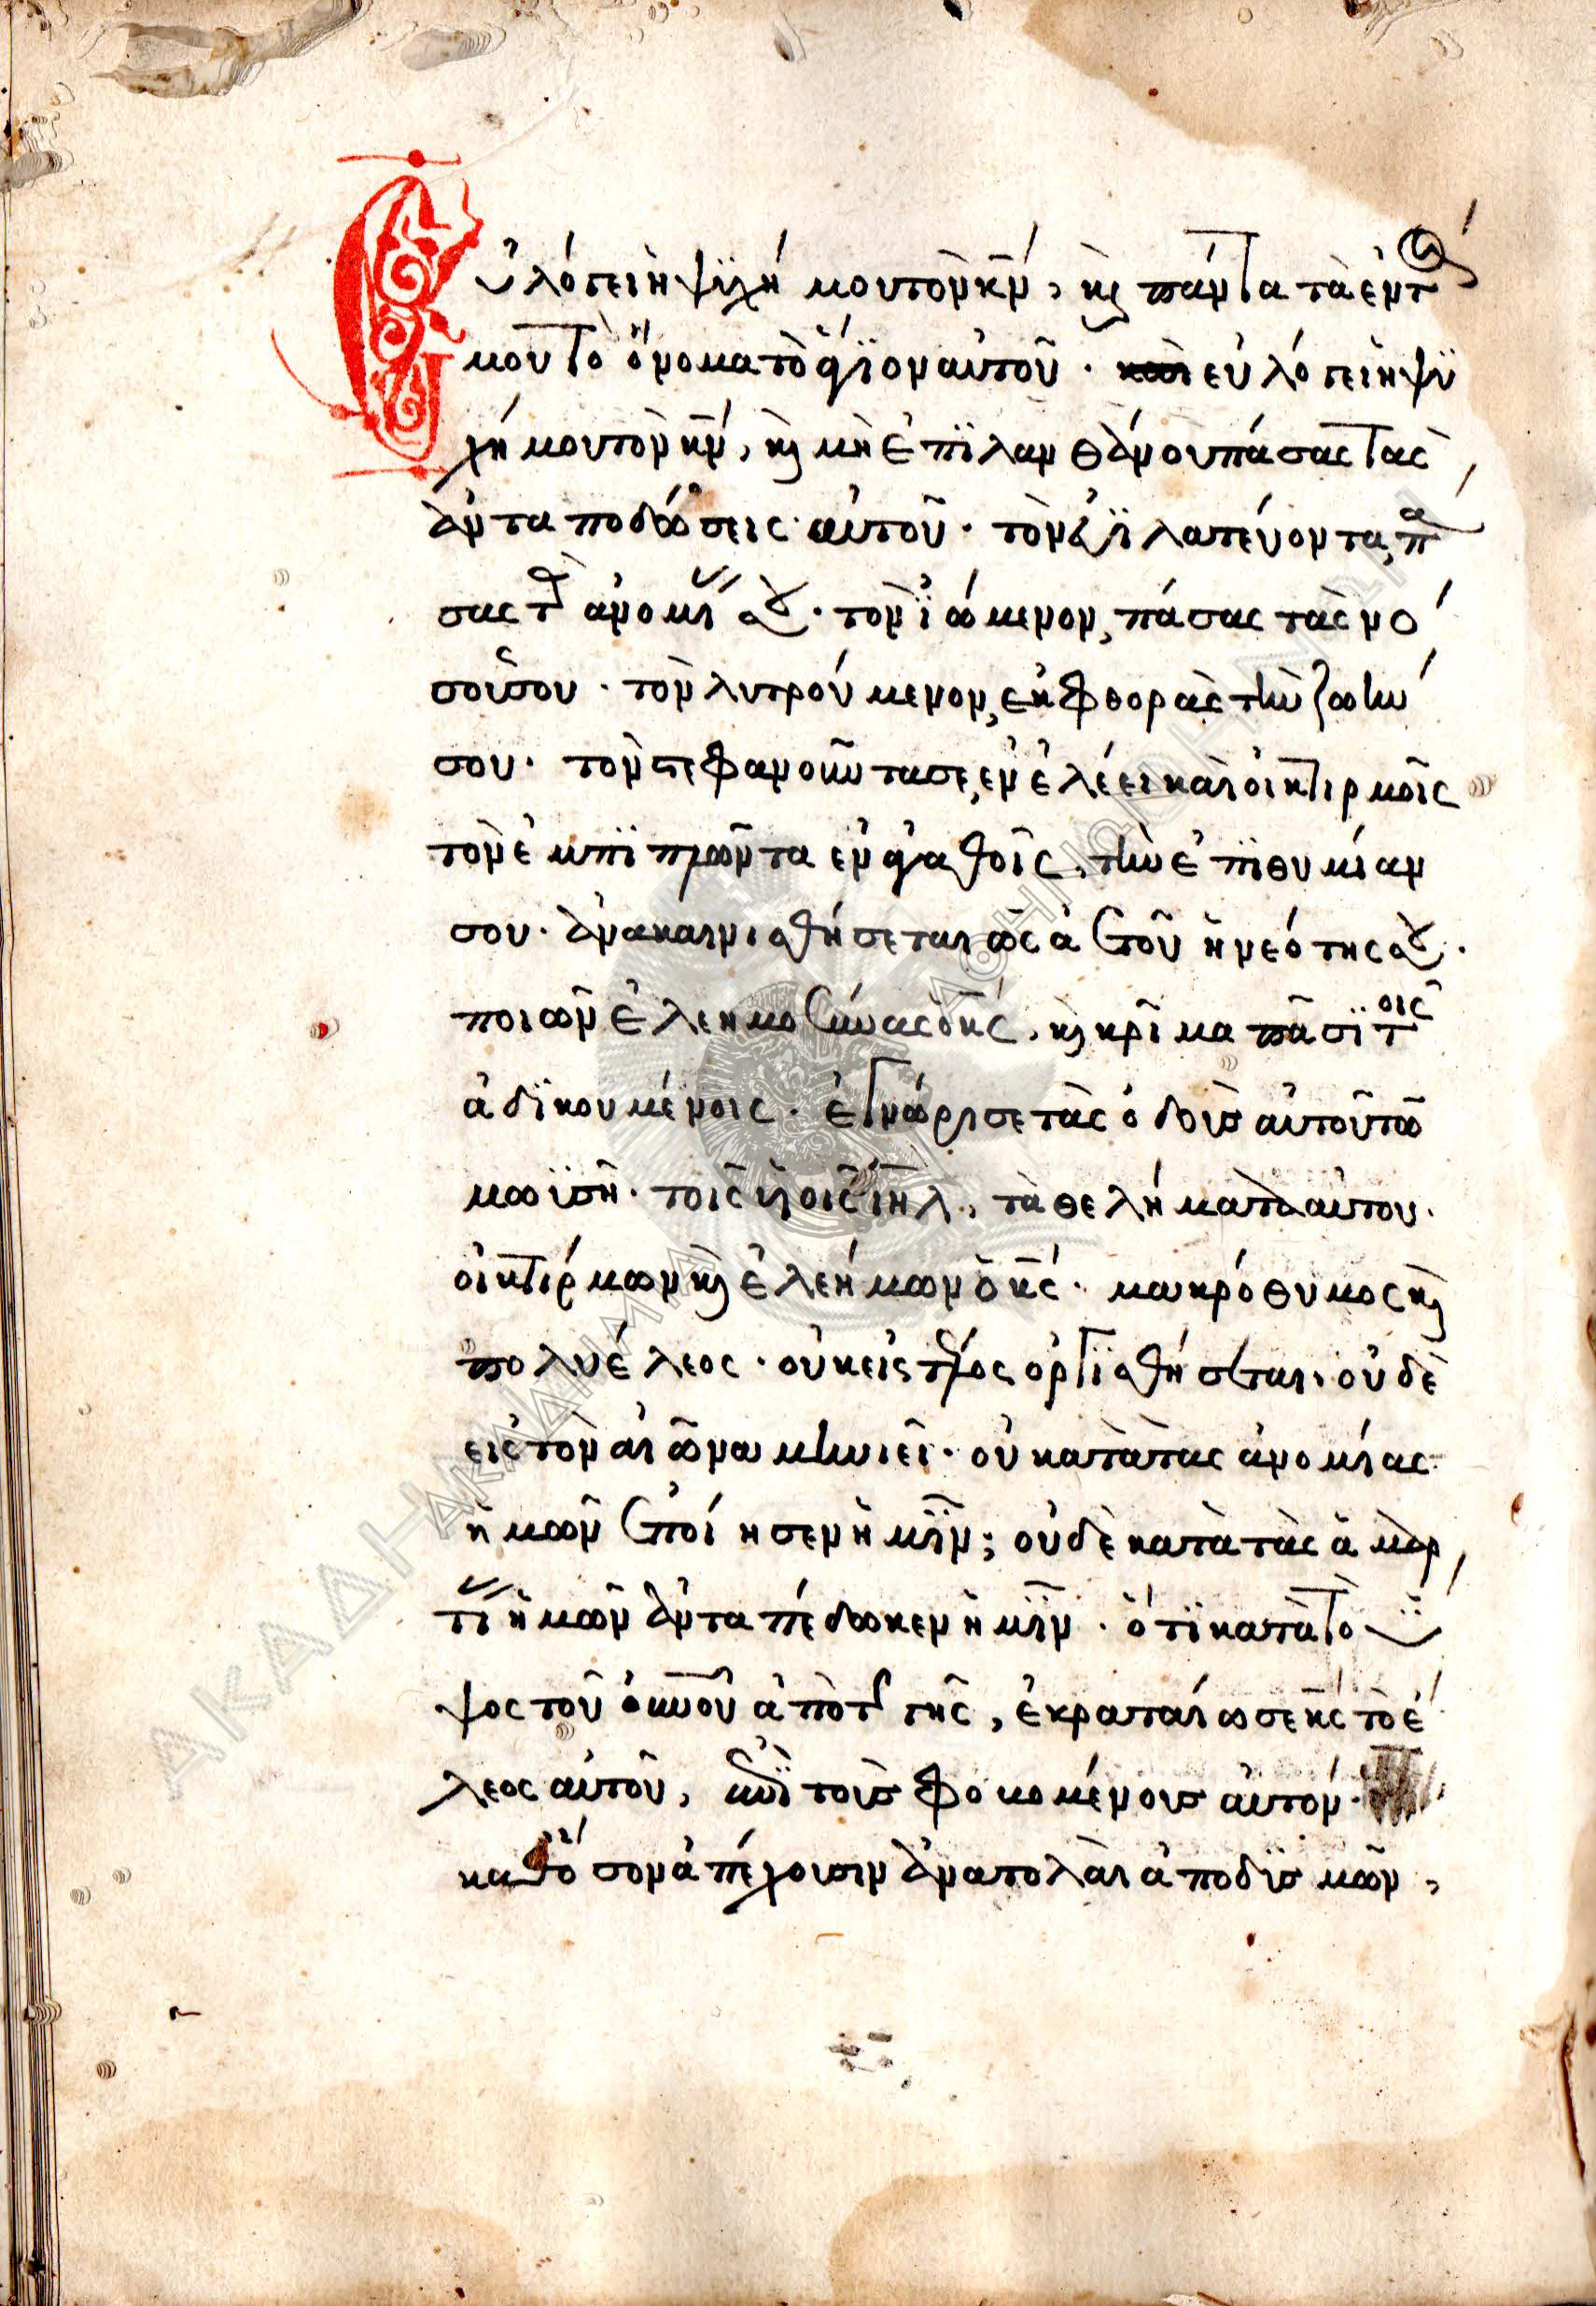 Εὐλόγει ἡ ψϋχή μου τὸν κ̅ν̅, κ̀ πάντα τὰ ἐντ
μου τὸ ὄνομα τὸ ἅγϊον αὐτοῦ. εὐλόγει ἡ ψϋ
χή μου τὸν κ̅ν̅, κ̀ μὴ ἐπϊλανθάνου πάσας τὰς
ἀνταποδώσεις αὐτοῦ. τὸν ἐϋϊλατεύοντα, π
σας τ ἀνομί σου. τὸν ἰώμενον, πάσας τὰς νό
σους σου. τὸν λυτρούμενον, ἐκ φθορᾶς τὴν ζωήν
σου. τὸν στεφανοῦντα σε, ἐν ἐλέει καὶ οἰκτιρμοῖς
τὸν ἐμπϊπλῶντα ἐν ἀγαθοῖς, τὴν ἐπϊθυμίαν
σου. ἀνακαινισθήσεται ὡς ἀετοῦ ἡ νεότης σου.
ποιῶν ἐλεημοσύνας ὁ κ̅ς̅, κ̀ κρῖμα πᾶσϊ τοῖς
ἀδϊκουμένοις. ἐγνώρισε τὰς ὁδοὺς αὐτοῦ τῶ
μωϋσῆ. τοῖς υἱοῖς ι̅η̅λ̅, τὰ θελήματα αὐτου.
οἰκτίρμων κ̀ ἐλεήμων ὁ κ̅ς̅. μακρόθυμος κ̀
πολυέλεος. οὐκ εἰς τέλος ὀργϊσθήσεται, οὐδὲ
εις τὸν αἰῶνα μηνιεῖ. οὐ κατὰ τας ἀνομίας
ἡμῶν ἐποίησεν ἡμῖν; οὐδὲ κατὰ τὰς ἁμαρ
τί ἡμῶν ἀνταπέδωκεν ἡμῖν. ὅτϊ κατὰ τὸ ὕ
ψος τοῦ ο̅υ̅ν̅ο̅υ̅ ἀπὸ τ γῆς, ἐκραταίωσε κ̅ς̅ τὸ ἔ
λεος αὐτοῦ, ἐπὶ τοὺς φοβομένους αὐτόν.
καθ᾽ ὅσον ἀπέχουσιν ἀνατολαὶ ἀπὸ δϋσμῶν,